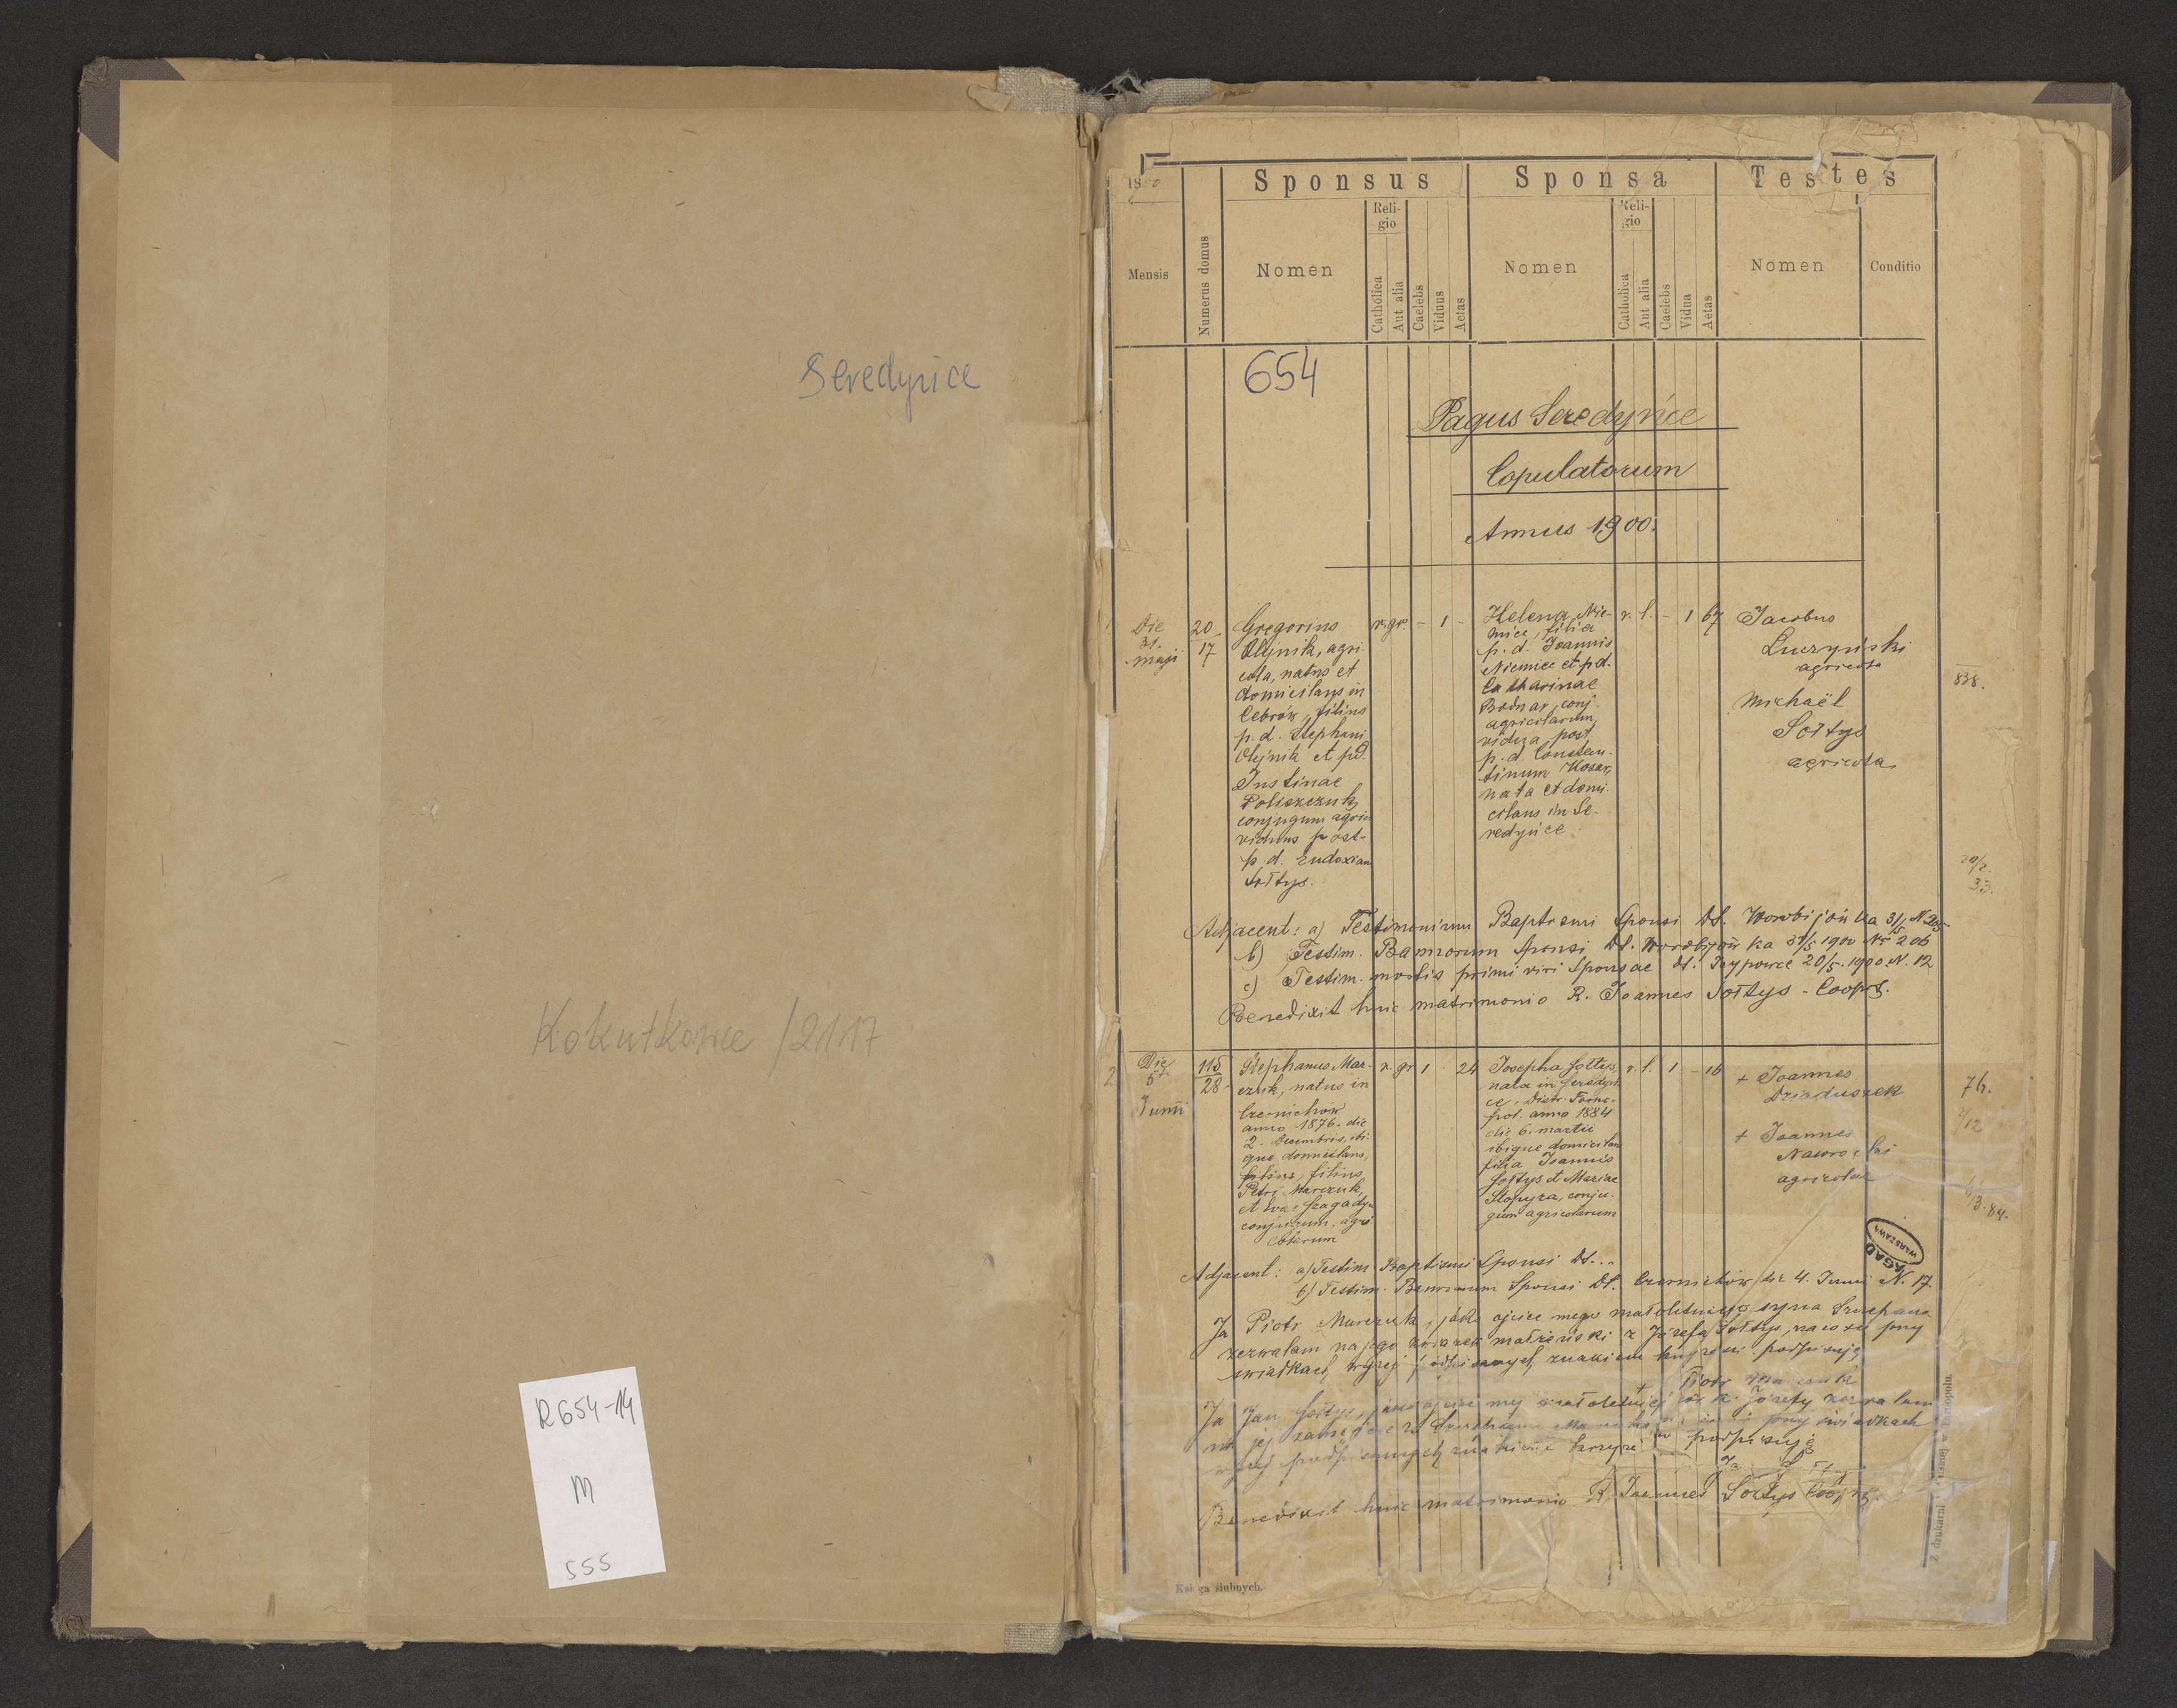 Seredyńce
Kokutkowce / 2117
R 654-14
M
555
1900
Sponsus
Sponsa
Testes
Mensis
Numerus domus
Nomen
Reli-
gio
Catholica
Aut alia
Caelebs
Viduus
Aetas
Nomen
Reli-
gio
Catholica
Aut alia
Caelebs
Vidua
Aetas
Nomen
Conditio
654
Pagus Seredyńce
Copulatorum
Annus 1900.
Die
31.
maji
20
17
Gregorius
Olejnik, agri-
cola, natus et
domicilans in
Cebrów, filius
p. d. Stephani
Olejnik et p.d.
Justinae
Poliszczuk,
conjugum agric
viduus post
p. d. Eudoxiam
Sołtys.
r. gr. - 1 -
Helena Nie-
miec, filia
p. d. Joannis
Niemiec et p.d.
Catharinae
Bodnar, conj.
agricolarum,
vidua post
p. d. Constan-
tinum Kosar,
nata et domi-
cilans in Se-
redyńce
r. l. - 1 67
Jacobus
Łuczyński
agricola
Michaël
Sołtys
agricola
838.
Adjacent: a) Testimonium Baptismi Sponsi Dt. Worobijówka
b) Testim. Bannorum Sponsi Dt. Worobijówka 31/5 1900 Nr 206
c) Testim. mortis primi viri Sponsae dt. 20/5. 1900 N. 12
Benedixit huic matrimonio R. Joannes Sołtys - Cooprt.
2
Die
5
Junii
115
28
Stephanus Mar-
czuk, natus in
Czernichów
anno 1876. die
2. Decembris, ibi-
que domicilans,
filius
Petri Marczuk,
et
conjugum, agri-
colarum
r. gr 1 24
Josepha Sołtys,
nata in Seredyń
ce, Distr. Tarno-
pol. anno 1884
die 6. martii
ibique domicilans
filia Joannis
Sołtys et Mariae
Stopyra, conju-
gum agricolarum
r. l. 1 - 16
+ Joannes
Dziaduszek
+ Joannes
Nawrocki
agricolae
76.
2/12
6/3. 84.
AGAD
WARSZAWA
Adjacent: a) Testim. Baptismi Sponsi Dt...
b) Testim. Bannorum Sponsi Dt. Czernichów die 4. Junii N. 17.
Ja Piotr Marczuk, jako ojciec mego małoletniego syna Szczepana
zezwalam na jego związek małżeński z Józefą Sołtys, na co się przy
świadkach wyżej podpisanych znakiem krzyża podpisuję
Piotr Marczuk
Ja Jan Sołtys, jako ojciec mej małoletniej Józefy zezwalam
na jej przy świadkach
wyżej podpisanych znakiem krzyża podpisuję
Benedixit huic matrimonio R. Joannes Sołtys Cooprt.
Księga ślubnych.
Z drukarni